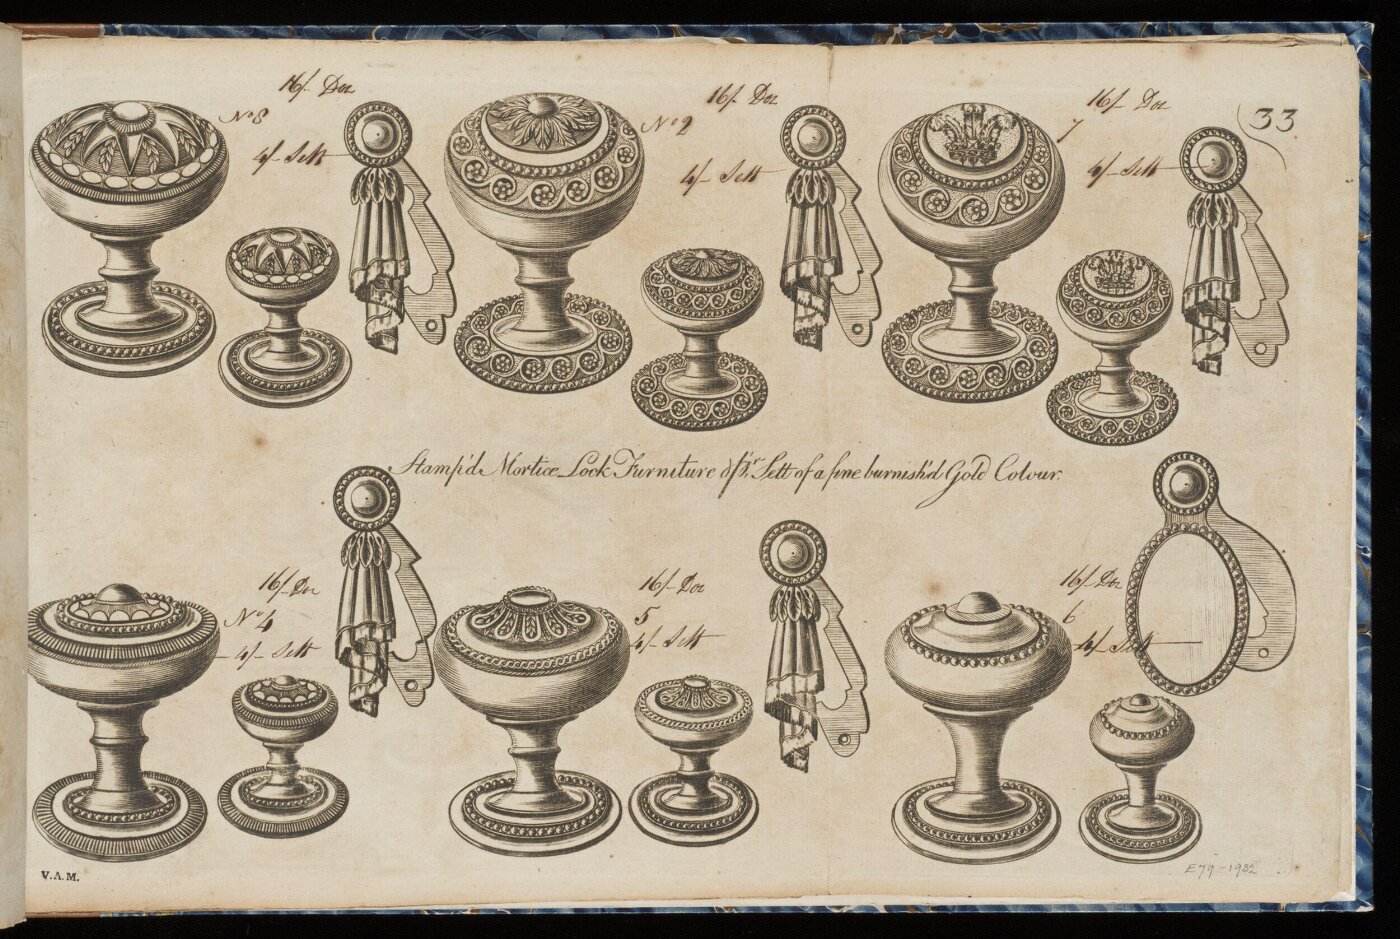 16/- Doz
No 8
4/- Sett
16/- Doz
No 9
4/- Sett
16/- Doz
7
4/- Sett
33
Stamp'd Mortice Lock Furniture & pr. Sett of a fine burnish'd Gold Colour.
16/- Doz
No 4
4/- Sett
16/- Doz
5
4/- Sett
16/- Doz
6
4/- Sett
V.A.M.
E79-1932